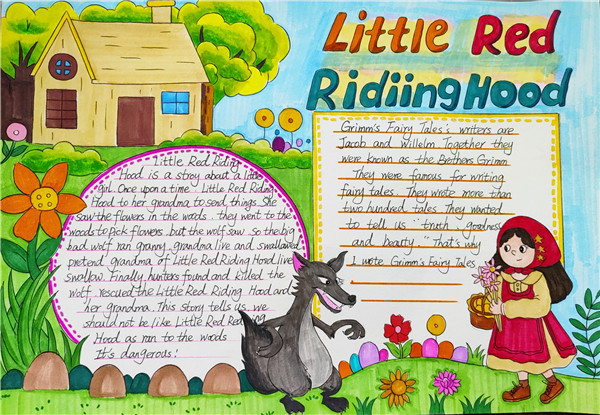 Little Red
Ridiing Hood
Little Red Riding
Hood is a stroy about a little
girl. Once upon a time. Little Red Riding
Hood to her grandma to send things. She
saw the flowers in the woods. they went to the
woods to pick flowers. but the wolf saw. so the big
bad wolf ran granny. grandma live and swallowed
pretend grandma of Little Red Riding Hond live
swallow. Finally hunters found and killed the
wolf. rescued the Little Red Riding Hood and
her grandma. This story tells us. we
should not be like Little Red Reding
Hood as ran to the woods
It's dangerous!
Grimm's Fairy Tales: writers are
Jacob and Willelm. Together they
were known as the Brethers Grimm.
They were famous for writing
fairy tales. They wrote more than
two hundred tales. They wanted
to tell us "truth, goodness
and beauty." That's why
I wrote Grimm's Fairy Tales